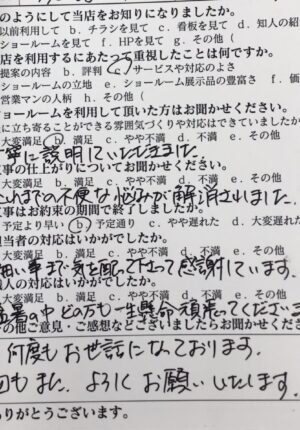 のようにして当店をお知りになりましたか。
以前利用して b. チラシを見て c. 看板を見て d. 知人の紹
ショールームを見て f. HPを見て g. その他（
店を利用するにあたって重視したことは何ですか。
提案の内容 b. 評判 c. サービスや対応のよさ
ショールームの立地 e. ショールーム展示品の豊富さ f. 価
営業マンの人柄 h. その他（
ショールームを利用して頂いた方はお聞かせください。
に立ち寄ることができる雰囲気づくりや対応はできていましたか
大変満足 b. 満足 c. やや不満 d. 不満 e. その他
寧に説明していただきました
事の仕上がりについてお聞かせください。
大変満足 b. 満足 c. やや不満 d. 不満 e. その他
これまでの不便な悩みが解消されました。
事はお約束の期間で終了しましたか。
予定より早い b. 予定通り c. やや遅れた d. 大変遅れた
担当者の対応はいかがでしたか。
大変満足 b. 満足 c. やや不満 d. 不満 e. その他
細い事まで気を配って下さって感謝しています。
人の対応はいかがでしたか。
大変満足 b. 満足 c. やや不満 d. 不満 e. その他
猛暑の中 どの方も一生懸命頑張ってください
の他ご意見・ご感想などございましたらお聞かせくださ
何度もお世話になっております。
回もまた、よろしくお願いいたします。
ありがとうございます。